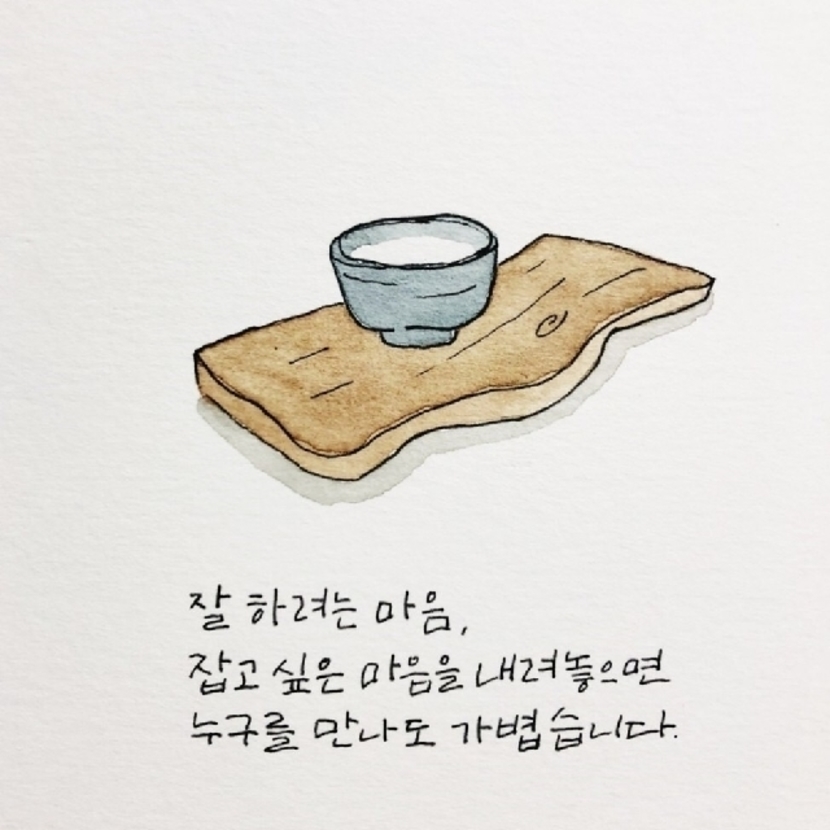 잘 하려는 마음,
잡고 싶은 마음을 내려놓으면
누구를 만나도 가볍습니다.